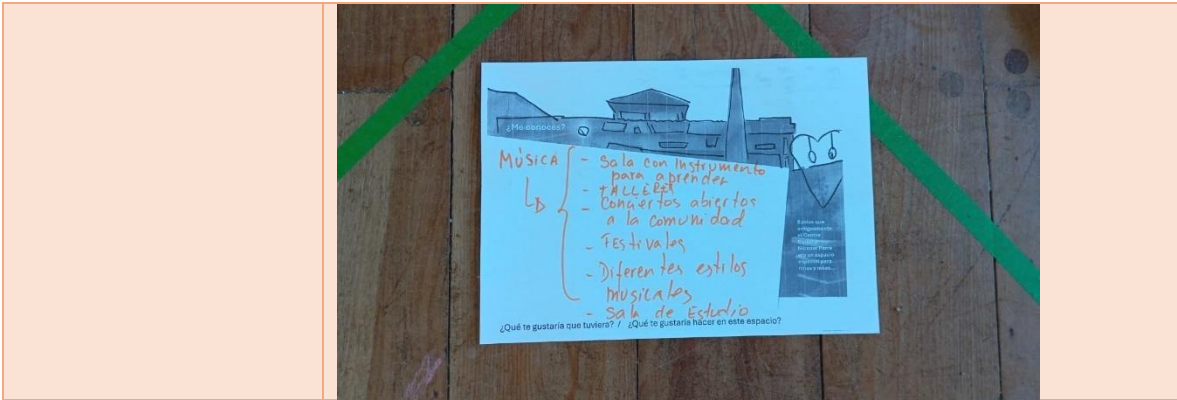 ¿Me conoces?
MÚSICA
- Sala con Instrumento
para aprender
- TALLERES
- Conciertos abiertos
a la comunidad
- FEstivales
- Diferentes estilos
musicales
- Sala de Estudio
¿Qué te gustaría que tuviera? / ¿Qué te gustaría hacer en este espacio?
Sabías que
antiguamente
era un espacio